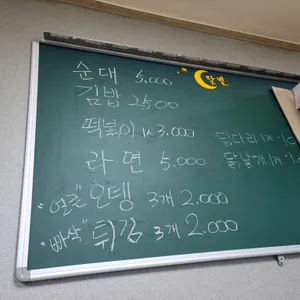 순대 5,000
달빛
김밥 2500
떡볶이 1人 3.000
닭다리 1개
라면 5.000
닭날개 1개
"얼큰" 오뎅 3개 2.000
"빠삭" 튀김 3개 2.000